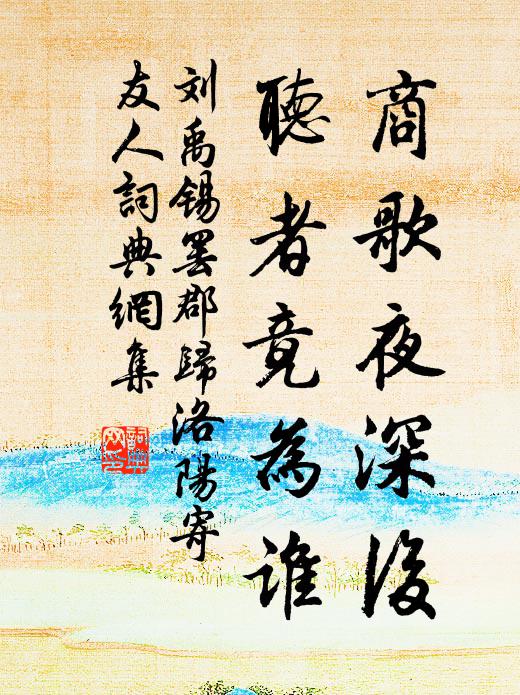 商歌夜深後
聽者竟為誰
刘禹锡罢郡歸洛陽寄
友人詞典網集